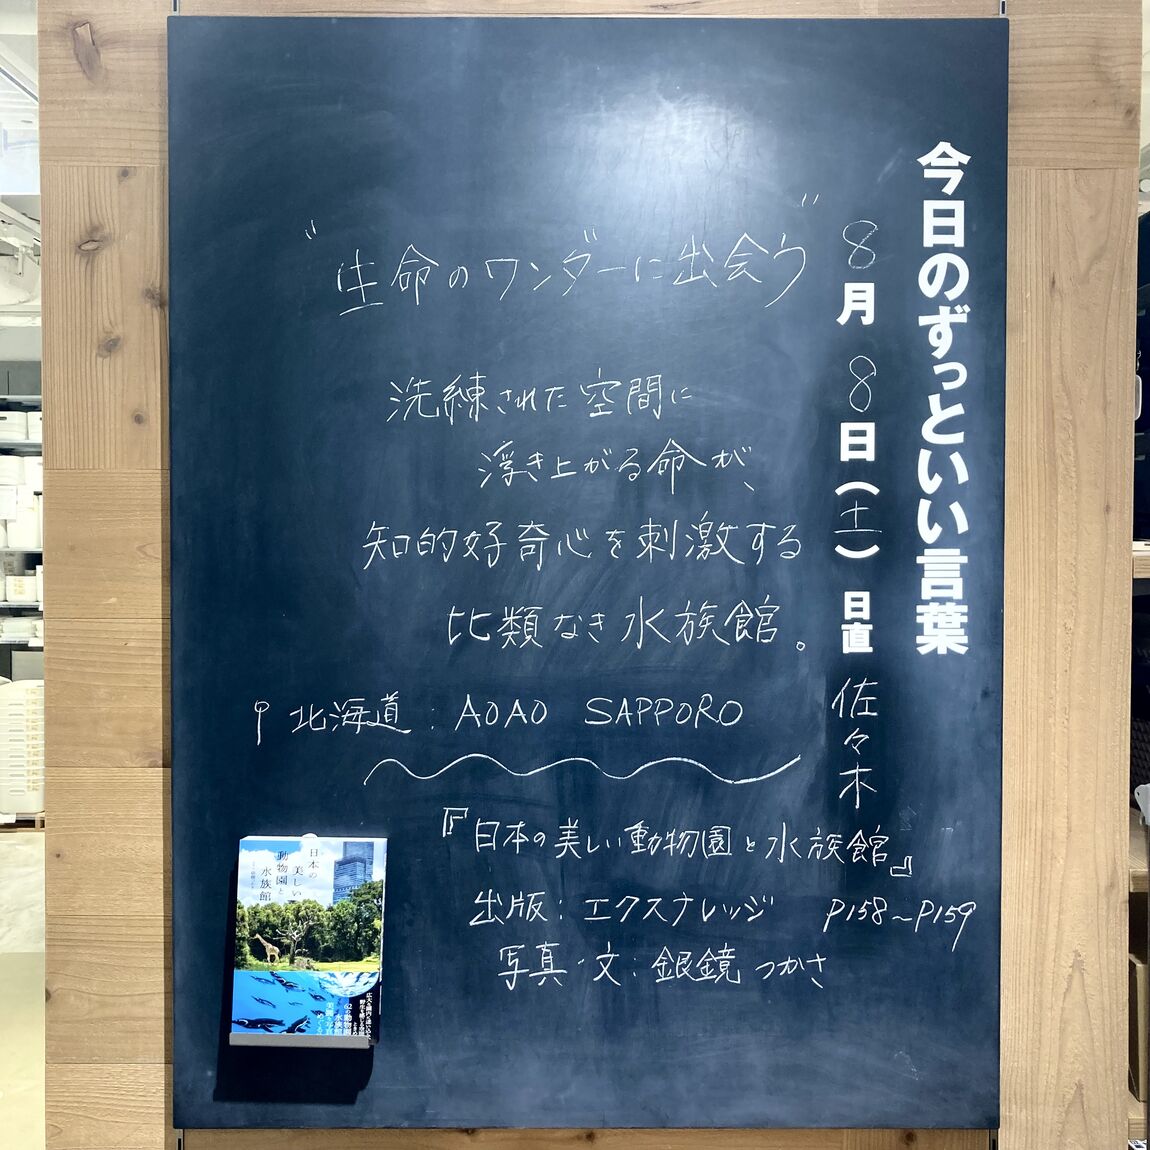 今日のずっといい言葉
8月8日(土)日直 佐々木
"生命のワンダーに出会う"
洗練された空間に
浮き上がる命が、
知的好奇心を刺激する
比類なき水族館。
北海道:AOAO SAPPORO
『日本の美しい動物園と水族館』
出版:エクスナレッジ P158〜P159
写真・文:銀鏡つかさ
日本の
美しい
動物園と
水族館
62の動物園